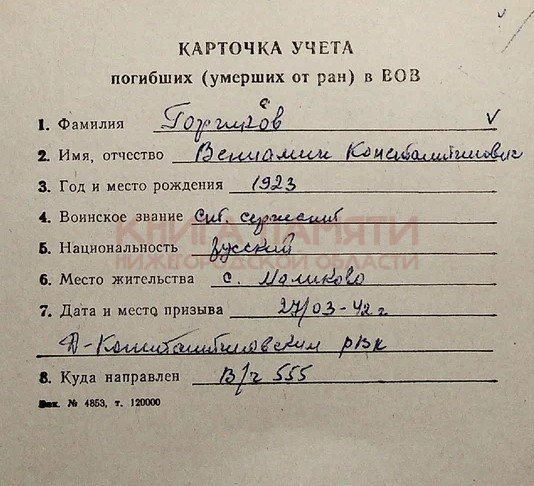 КАРТОЧКА УЧЕТА
погибших (умерших от ран) в ВОВ
1. Фамилия
2. Имя, отчество Вениамин Константинович
3. Год и место рождения 1923
4. Воинское звание ст. сержант
КНИГА ПАМЯТИ
5. Национальность русский
НИЖЕГОРОДСКОЙ ОБЛАСТИ
6. Место жительства с. Маликово
7. Дата и место призыва 27/03-42 г
Д-Константиновским рвк
8. Куда направлен В/ч 555
Зак. № 4853, т. 120000